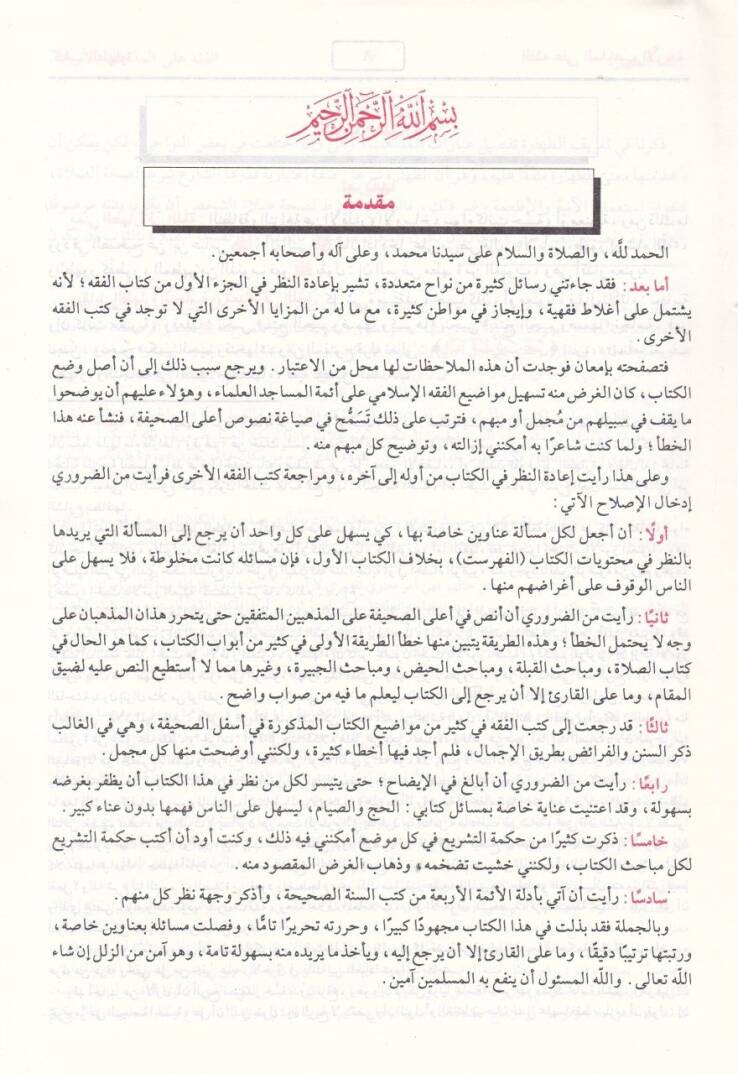 بسم الله الرحمن الرحيم
مقدمة
الحمد للَّه، والصلاة والسلام على سيدنا محمد، وعلى آله وأصحابه أجمعين.
أما بعد: فقد جاءتني رسائل كثيرة من نواح متعددة، تشير بإعادة النظر في الجزء الأول من كتاب الفقه؛ لأنه
يشتمل على أغلاط فقهية، وإيجاز في مواطن كثيرة، مع ما له من المزايا الأخرى التي لا توجد في كتب الفقه
الأخرى.
فتصفحته بإمعان فوجدت أن هذه الملاحظات لها محل من الاعتبار. ويرجع سبب ذلك إلى أن أصل وضع
الكتاب، كان الغرض منه تسهيل مواضيع الفقه الإسلامي على أئمة المساجد العلماء، وهؤلاء عليهم أن يوضحوا
ما يقف في سبيلهم من مُجمل أو مبهم، فترتب على ذلك تَسَمُّح في صياغة نصوص أعلى الصحيفة، فنشأ عنه هذا
الخطأ؛ ولما كنت شاعرًا به أمكنني إزالته، وتوضيح كل مبهم منه.
وعلى هذا رأيت إعادة النظر في الكتاب من أوله إلى آخره، ومراجعة كتب الفقه الأخرى فرأيت من الضروري
إدخال الإصلاح الآتي:
أولًا: أن أجعل لكل مسألة عناوين خاصة بها، كي يسهل على كل واحد أن يرجع إلى المسألة التي يريدها
بالنظر في محتويات الكتاب (الفهرست)، بخلاف الكتاب الأول، فإن مسائله كانت مخلوطة، فلا يسهل على
الناس الوقوف على أغراضهم منها.
ثانيًا: رأيت من الضروري أن أنص في أعلى الصحيفة على المذهبين المتفقين حتى يتحرر هذان المذهبان على
وجه لا يحتمل الخطأ؛ وهذه الطريقة يتبين منها خطأ الطريقة الأولى في كثير من أبواب الكتاب، كما هو الحال في
كتاب الصلاة، ومباحث القبلة، ومباحث الحيض، ومباحث الجبيرة، وغيرها مما لا أستطيع النص عليه لضيق
المقام، وما على القارئ إلا أن يرجع إلى الكتاب ليعلم ما فيه من صواب واضح.
ثالثًا: قد رجعت إلى كتب الفقه في كثير من مواضيع الكتاب المذكورة في أسفل الصحيفة، وهي في الغالب
ذكر السنن والفرائض بطريق الإجمال، فلم أجد فيها أخطاء كثيرة، ولكنني أوضحت منها كل مجمل.
رابعًا: رأيت من الضروري أن أبالغ في الإيضاح؛ حتى يتيسر لكل من نظر في هذا الكتاب أن يظفر بغرضه
بسهولة، وقد اعتنيت عناية خاصة بمسائل كتابي: الحج والصيام، ليسهل على الناس فهمها بدون عناء كبير.
خامسًا: ذكرت كثيرًا من حكمة التشريع في كل موضع أمكنني فيه ذلك، وكنت أود أن أكتب حكمة التشريع
لكل مباحث الكتاب، ولكنني خشيت تضخمه، وذهاب الغرض المقصود منه.
سادسًا: رأيت أن آتي بأدلة الأئمة الأربعة من كتب السنة الصحيحة، وأذكر وجهة نظر كل منهم.
وبالجملة فقد بذلت في هذا الكتاب مجهودًا كبيرًا، وحررته تحريرًا تامًّا، وفصلت مسائله بعناوين خاصة،
ورتبتها ترتيبًا دقيقًا، وما على القارئ إلا أن يرجع إليه، ويأخذ ما يريده منه بسهولة تامة، وهو آمن من الزلل إن شاء
اللَّه تعالى. واللَّه المسئول أن ينفع به المسلمين آمين.